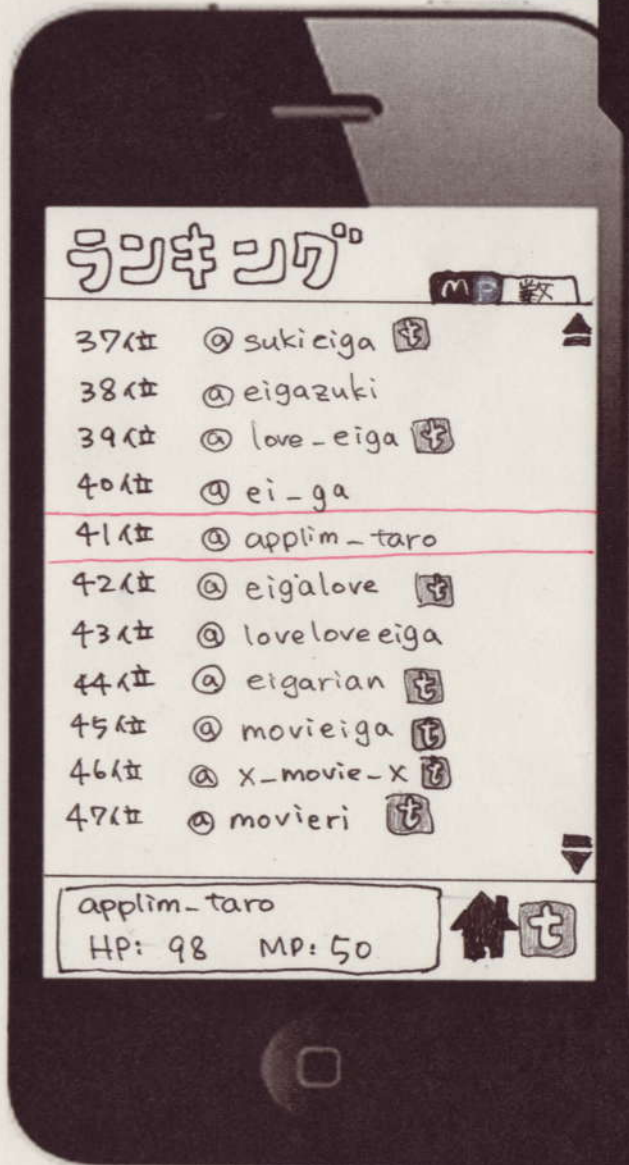 ランキング
MP 数
37位 @sukieiga t
38位 @eigazuki
39位 @love_eiga t
40位 @ei_ga
41位 @applim_taro
42位 @eigalove t
43位 @loveloveeiga
44位 @eigarian t
45位 @movieiga t
46位 @x_movie_x t
47位 @movieri t
applim_taro
HP: 98 MP: 50
t